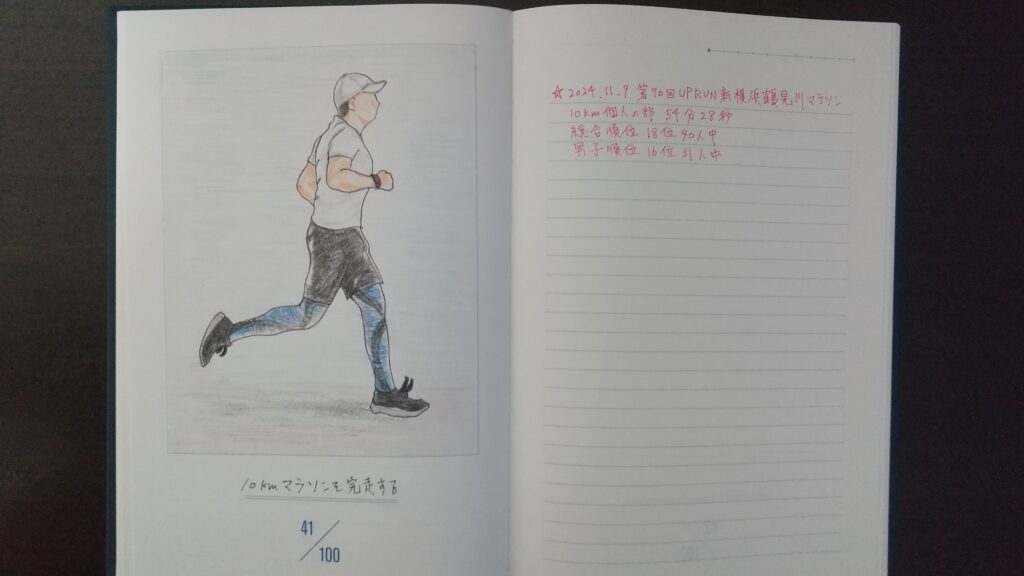 10kmマラソンを完走する
41/100
☆2024.11.9 第70回UPRUN新横浜鶴見川マラソン
10km個人の部 54分28秒
総合順位 18位 40人中
男子順位 16位 31人中